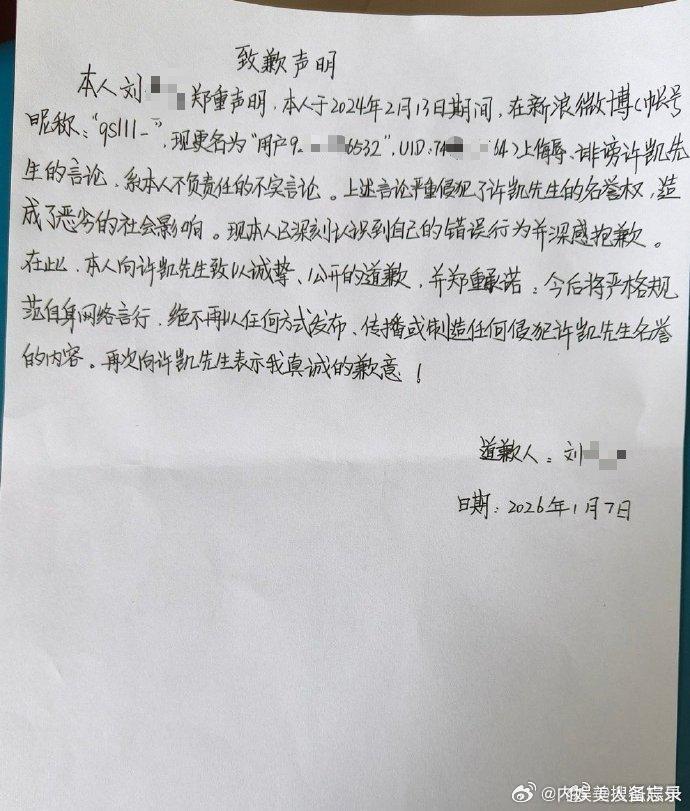 致歉声明
本人刘 郑重声明，本人于2024年2月13日期间，在新浪微博（帐号
昵称："qs111-"，现更名为"用户9 6532"，UID：74 64）上侮辱、诽谤许凯先
生的言论，系本人不负责任的不实言论。上述言论严重侵犯了许凯先生的名誉权，造
成了恶劣的社会影响。现本人已深刻认识到自己的错误行为并深感抱歉。
在此，本人向许凯先生致以诚挚、公开的道歉，并郑重承诺：今后将严格规
范自身网络言行，绝不再以任何方式发布、传播或制造任何侵犯许凯先生名誉
的内容。再次向许凯先生表示我真诚的歉意！
道歉人：刘
日期：2026年1月7日
@内娱美搜备忘录